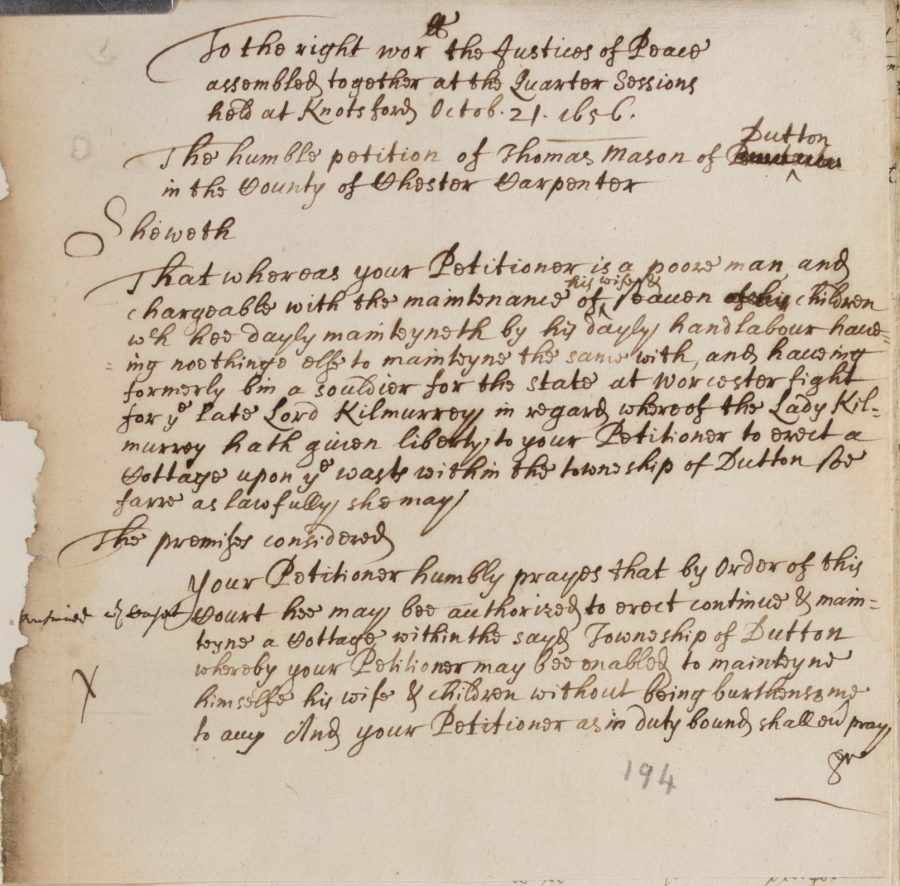 To the right wor ll the Justices of Peace
assembled together at the Quarter Sessions
held at Knotsford Octob. 21. 1656.
The humble petition of Thomas Mason of Dutton
in the County of Chester Carpenter
Sheweth
That whereas your Petitioner is a poore man, and
chargeable with the maintenance of, his wife & seauen of his Children
wch hee dayly mainteyneth by his dayly hand labour haue=
=ing noe thinge else to mainteyne the same with, and haueing
formerly bin a souldier for the state at Worcester fight
for ye late Lord Kilmurrey, in regard whereof the Lady Kil-
murrey hath giuen liberty, to your Petitioner to erect a
Cottage upon ye wasts within the towneship of Dutton soe
farre as lawfully she may
The premisses considered
Your Petitioner humbly prayes that by Order of this
Court hee may bee authorized to erect continue & main=
teyne a Cottage within the sayd Towneship of Dutton
whereby your Petitioner may bee enabled to mainteyne
himselfe his wife & children without being burthensome
to any And your Petitioner as in duty bound shall eu pray
&c
X
194